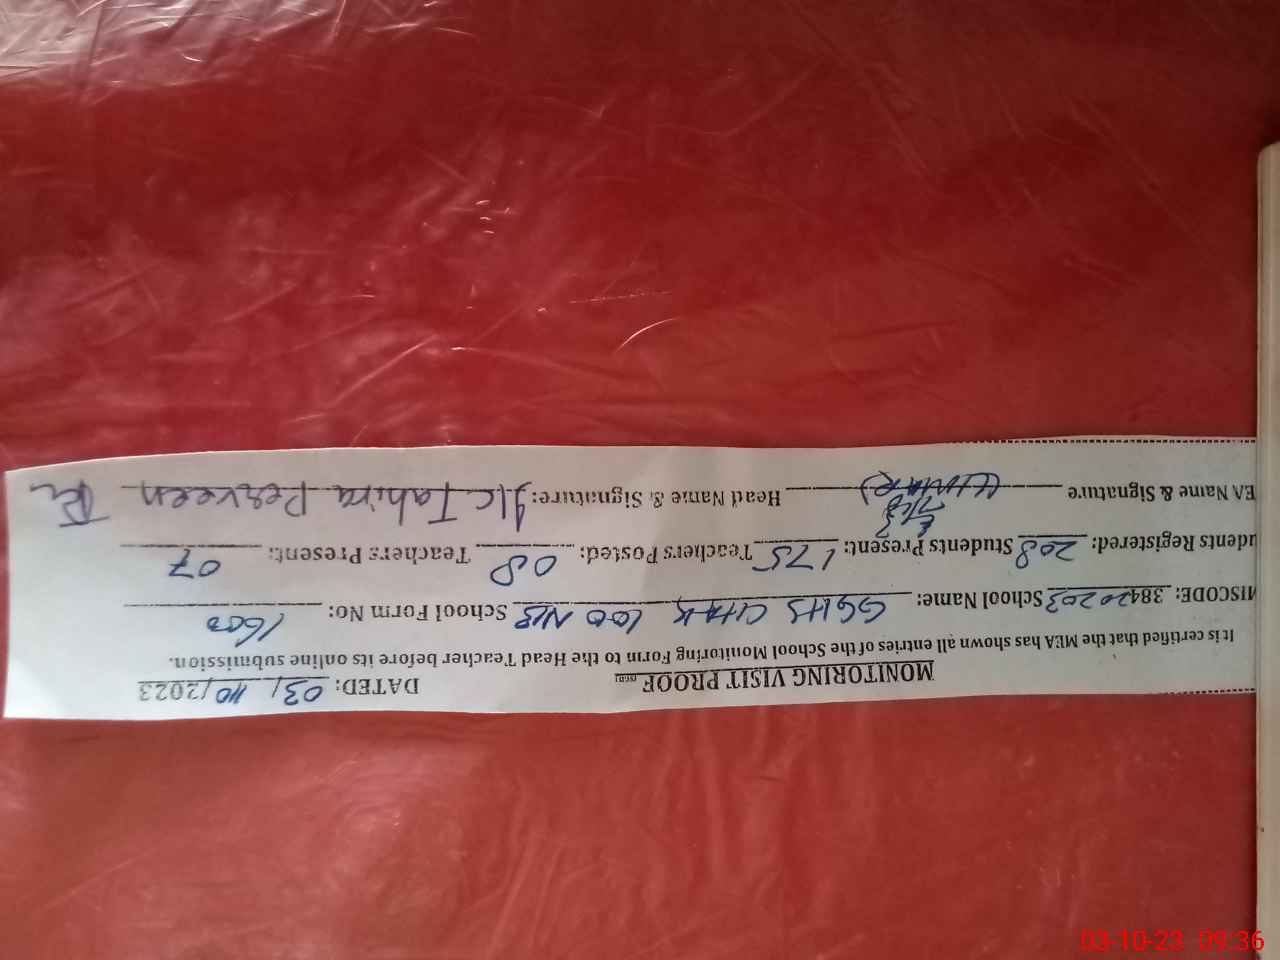 MONITORING VISIT PROOF DATED: 03/10/2023
It is certified that the MEA has shown all entries of the School Monitoring Form to the Head Teacher before its online submission.
MISCODE: 38420203 School Name: GGHS CHAK 100 NB School Form No: 1600
udents Registered: 208 Students Present: 175 Teachers Posted: 08 Teachers Present: 07
EA Name & Signature (UMAR) Head Name & Signature: I/C Tahira Perveen
03-10-23 09:36